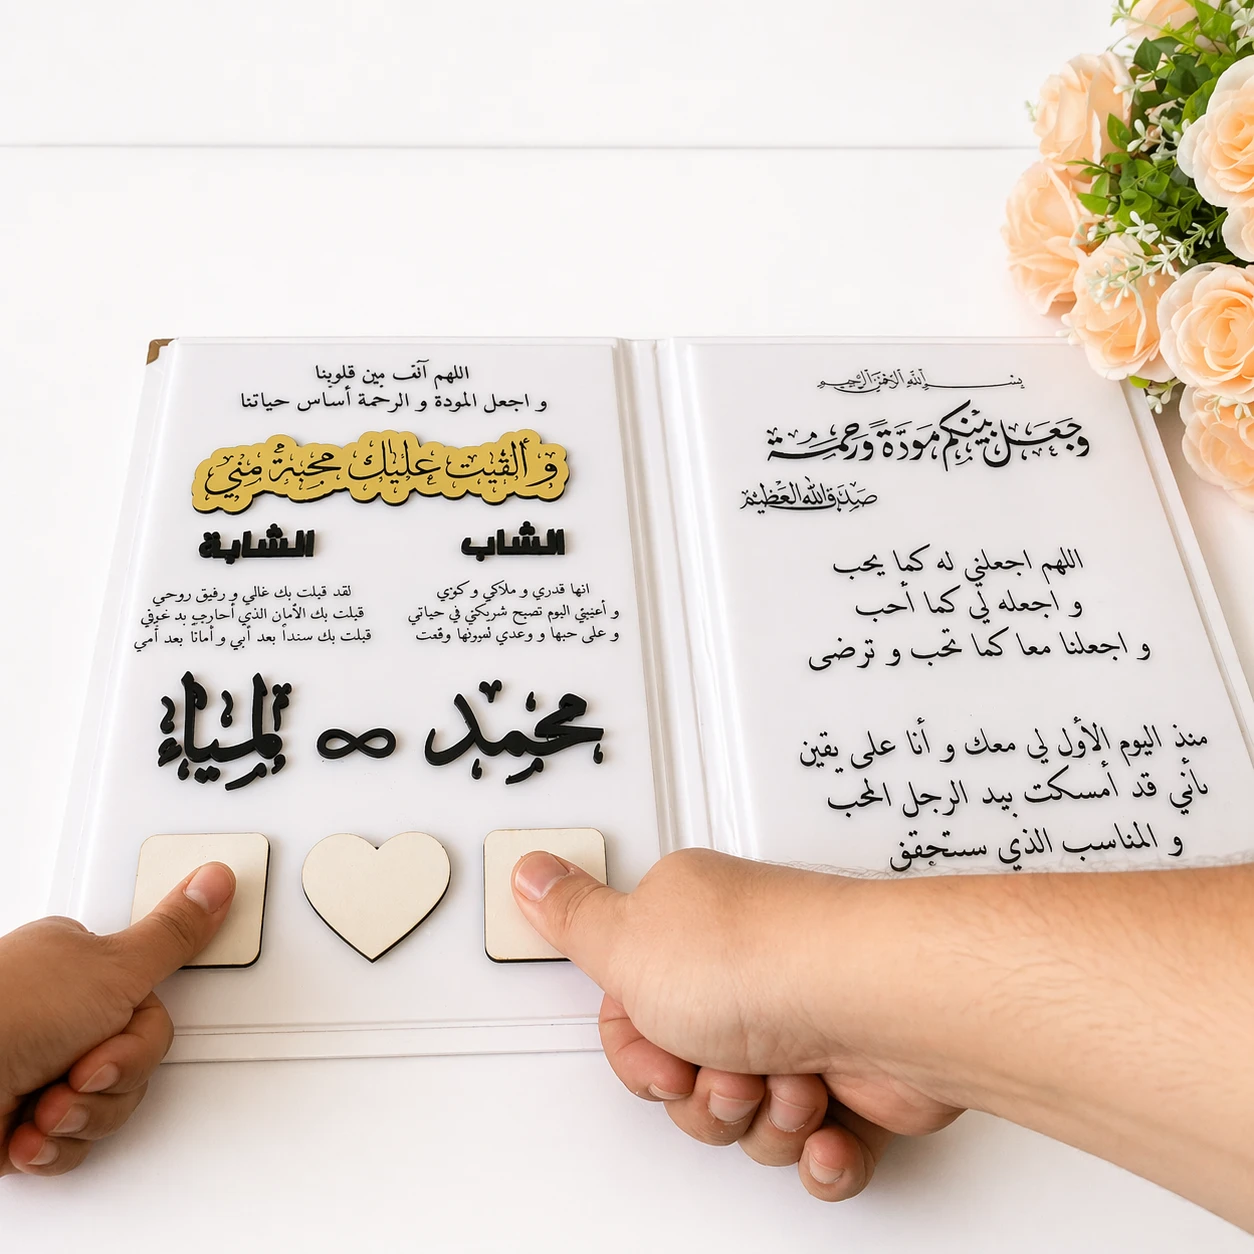 اللهم آلف بين قلوبنا
و اجعل المودة و الرحمة أساس حياتنا
و ألقيت عليك محبة مني
الشاب
انها قدري و ملاكي و كوني
و أعنيني اليوم تصبح شريكتي في حياتي
و على حبها و وعدي وقعت
الشابة
لقد قبلت بك غالي و رفيق روحي
قبلت بك الأمان الذي أحارب به خوفي
قبلت بك سنداً بعد أبي و أماناً بعد أمي
محمد ∞ لمياء
بسم الله الرحمن الرحيم
وجعل بينكم مودة ورحمة
صدق الله العظيم
اللهم اجعلني له كما يحب
و اجعله لي كما أحب
و اجعلنا معا كما تحب و ترضى
منذ اليوم الأول لي معك و أنا على يقين
بأني قد أمسكت بيد الرجل المحب
و المناسب الذي